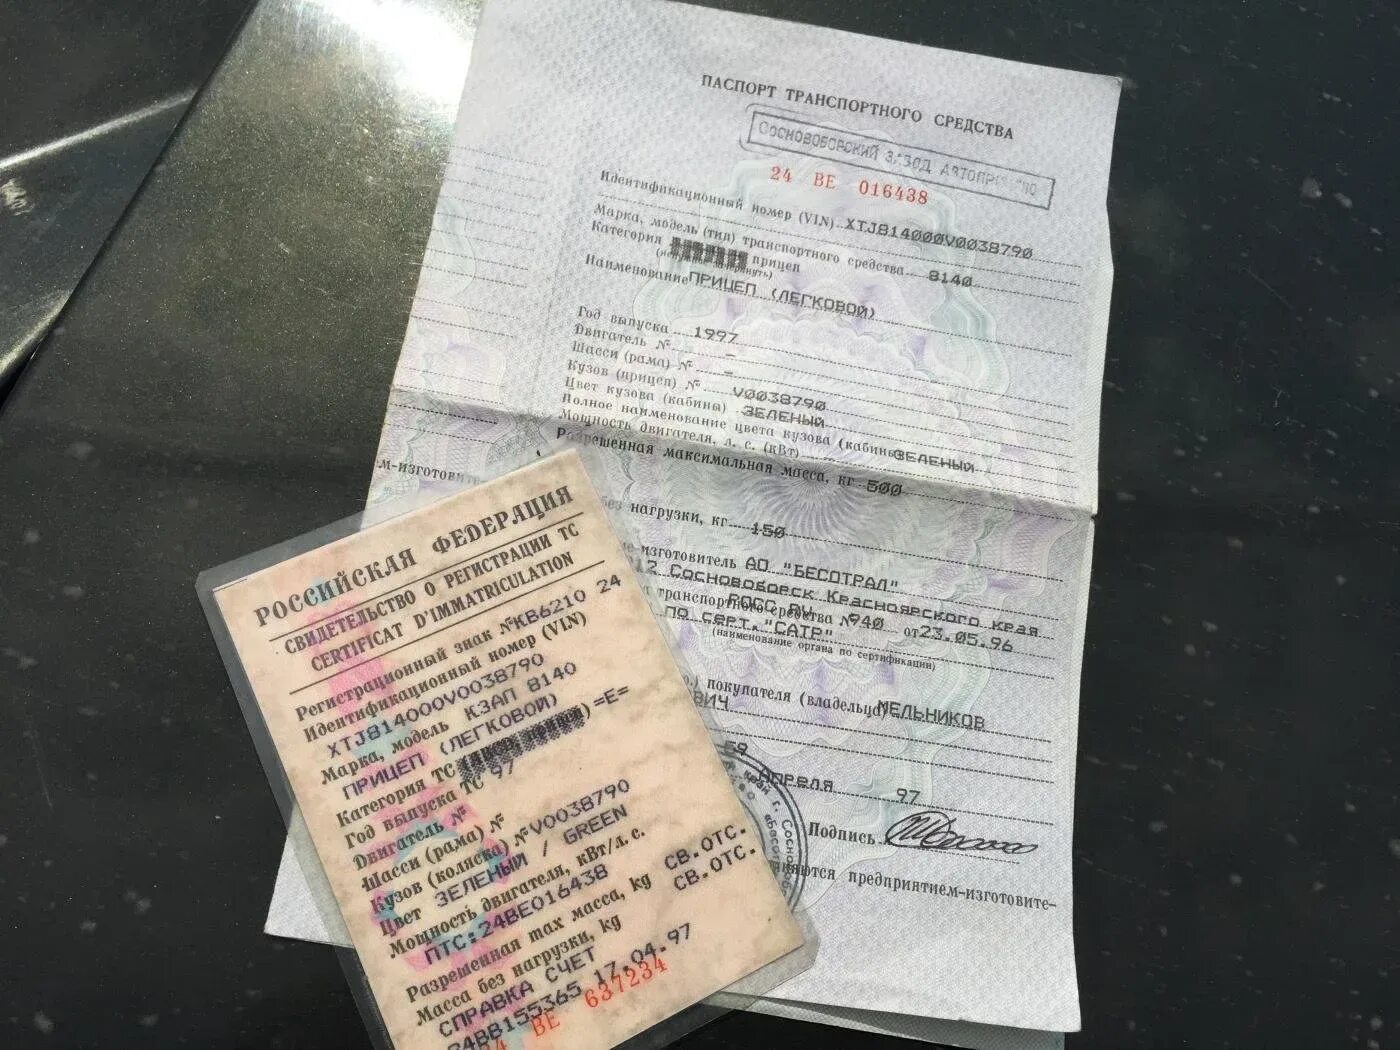 ПАСПОРТ ТРАНСПОРТНОГО СРЕДСТВА
СОСНОВОБОРСКИЙ ЗАВОД
24 ВЕ 016438
Идентификационный номер (VIN) XTJ814000V0038790
Марка, модель (тип) транспортного средства 8140
Категория прицеп
Наименование ПРИЦЕП (ЛЕГКОВОЙ)
Год выпуска 1997
Двигатель № –
Шасси (рама) № –
Кузов (прицеп) № V0038790
Цвет кузова (кабины) ЗЕЛЕНЫЙ
Полное наименование цвета кузова (кабины ЗЕЛЕНЫЙ
Мощность двигателя, л. с. (кВт)
Разрешенная максимальная масса, кг 500
без нагрузки, кг 150
м-изготовите
-изготовитель АО "БЕСОТРАЛ"
12 Сосновоборск Красноярского края
транспортного средства № 940 от 23.05.96
ПО серт. "САТР"
(наименование органа по сертификации)
покупателя (владельца) МЕЛЬНИКОВ
ВИЧ
59
АПРЕЛЯ 97
Подпись
няются предприятием-изготовите-
РОССИЙСКАЯ ФЕДЕРАЦИЯ
СВИДЕТЕЛЬСТВО О РЕГИСТРАЦИИ ТС
CERTIFICAT D'IMMATRICULATION
Регистрационный знак № КВ6210 24
Идентификационный номер (VIN)
XTJ814000V0038790
Марка, модель КЗАП 8140
ПРИЦЕП (ЛЕГКОВОЙ)
Категория ТС )=E=
Год выпуска ТС 97
Двигатель №
Шасси (рама) №
Кузов (коляска) № V0038790
Цвет ЗЕЛЕНЫЙ / GREEN
Мощность двигателя, кВт/л. с.
ПТС:24ВЕ016438
Разрешенная max масса, kg СВ.ОТС.
Масса без нагрузки, kg СВ.ОТС.
СПРАВКА СЧЕТ
24ВВ155365 17.04.97
24 ВЕ 637234